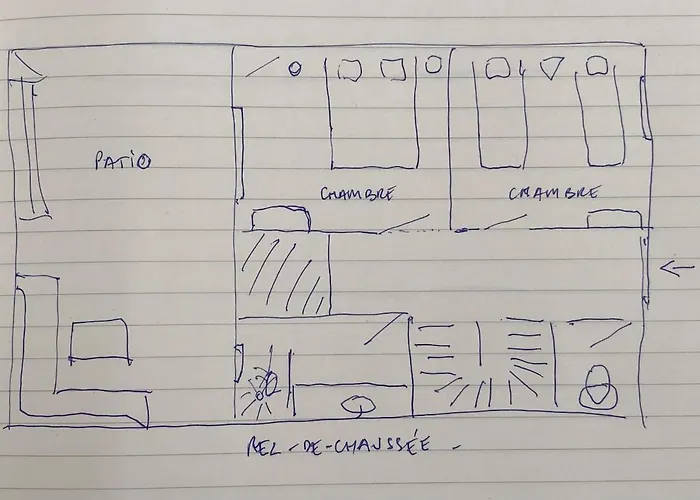 PATIO
CHAMBRE
CHAMBRE
REZ-DE-CHAUSSÉE -